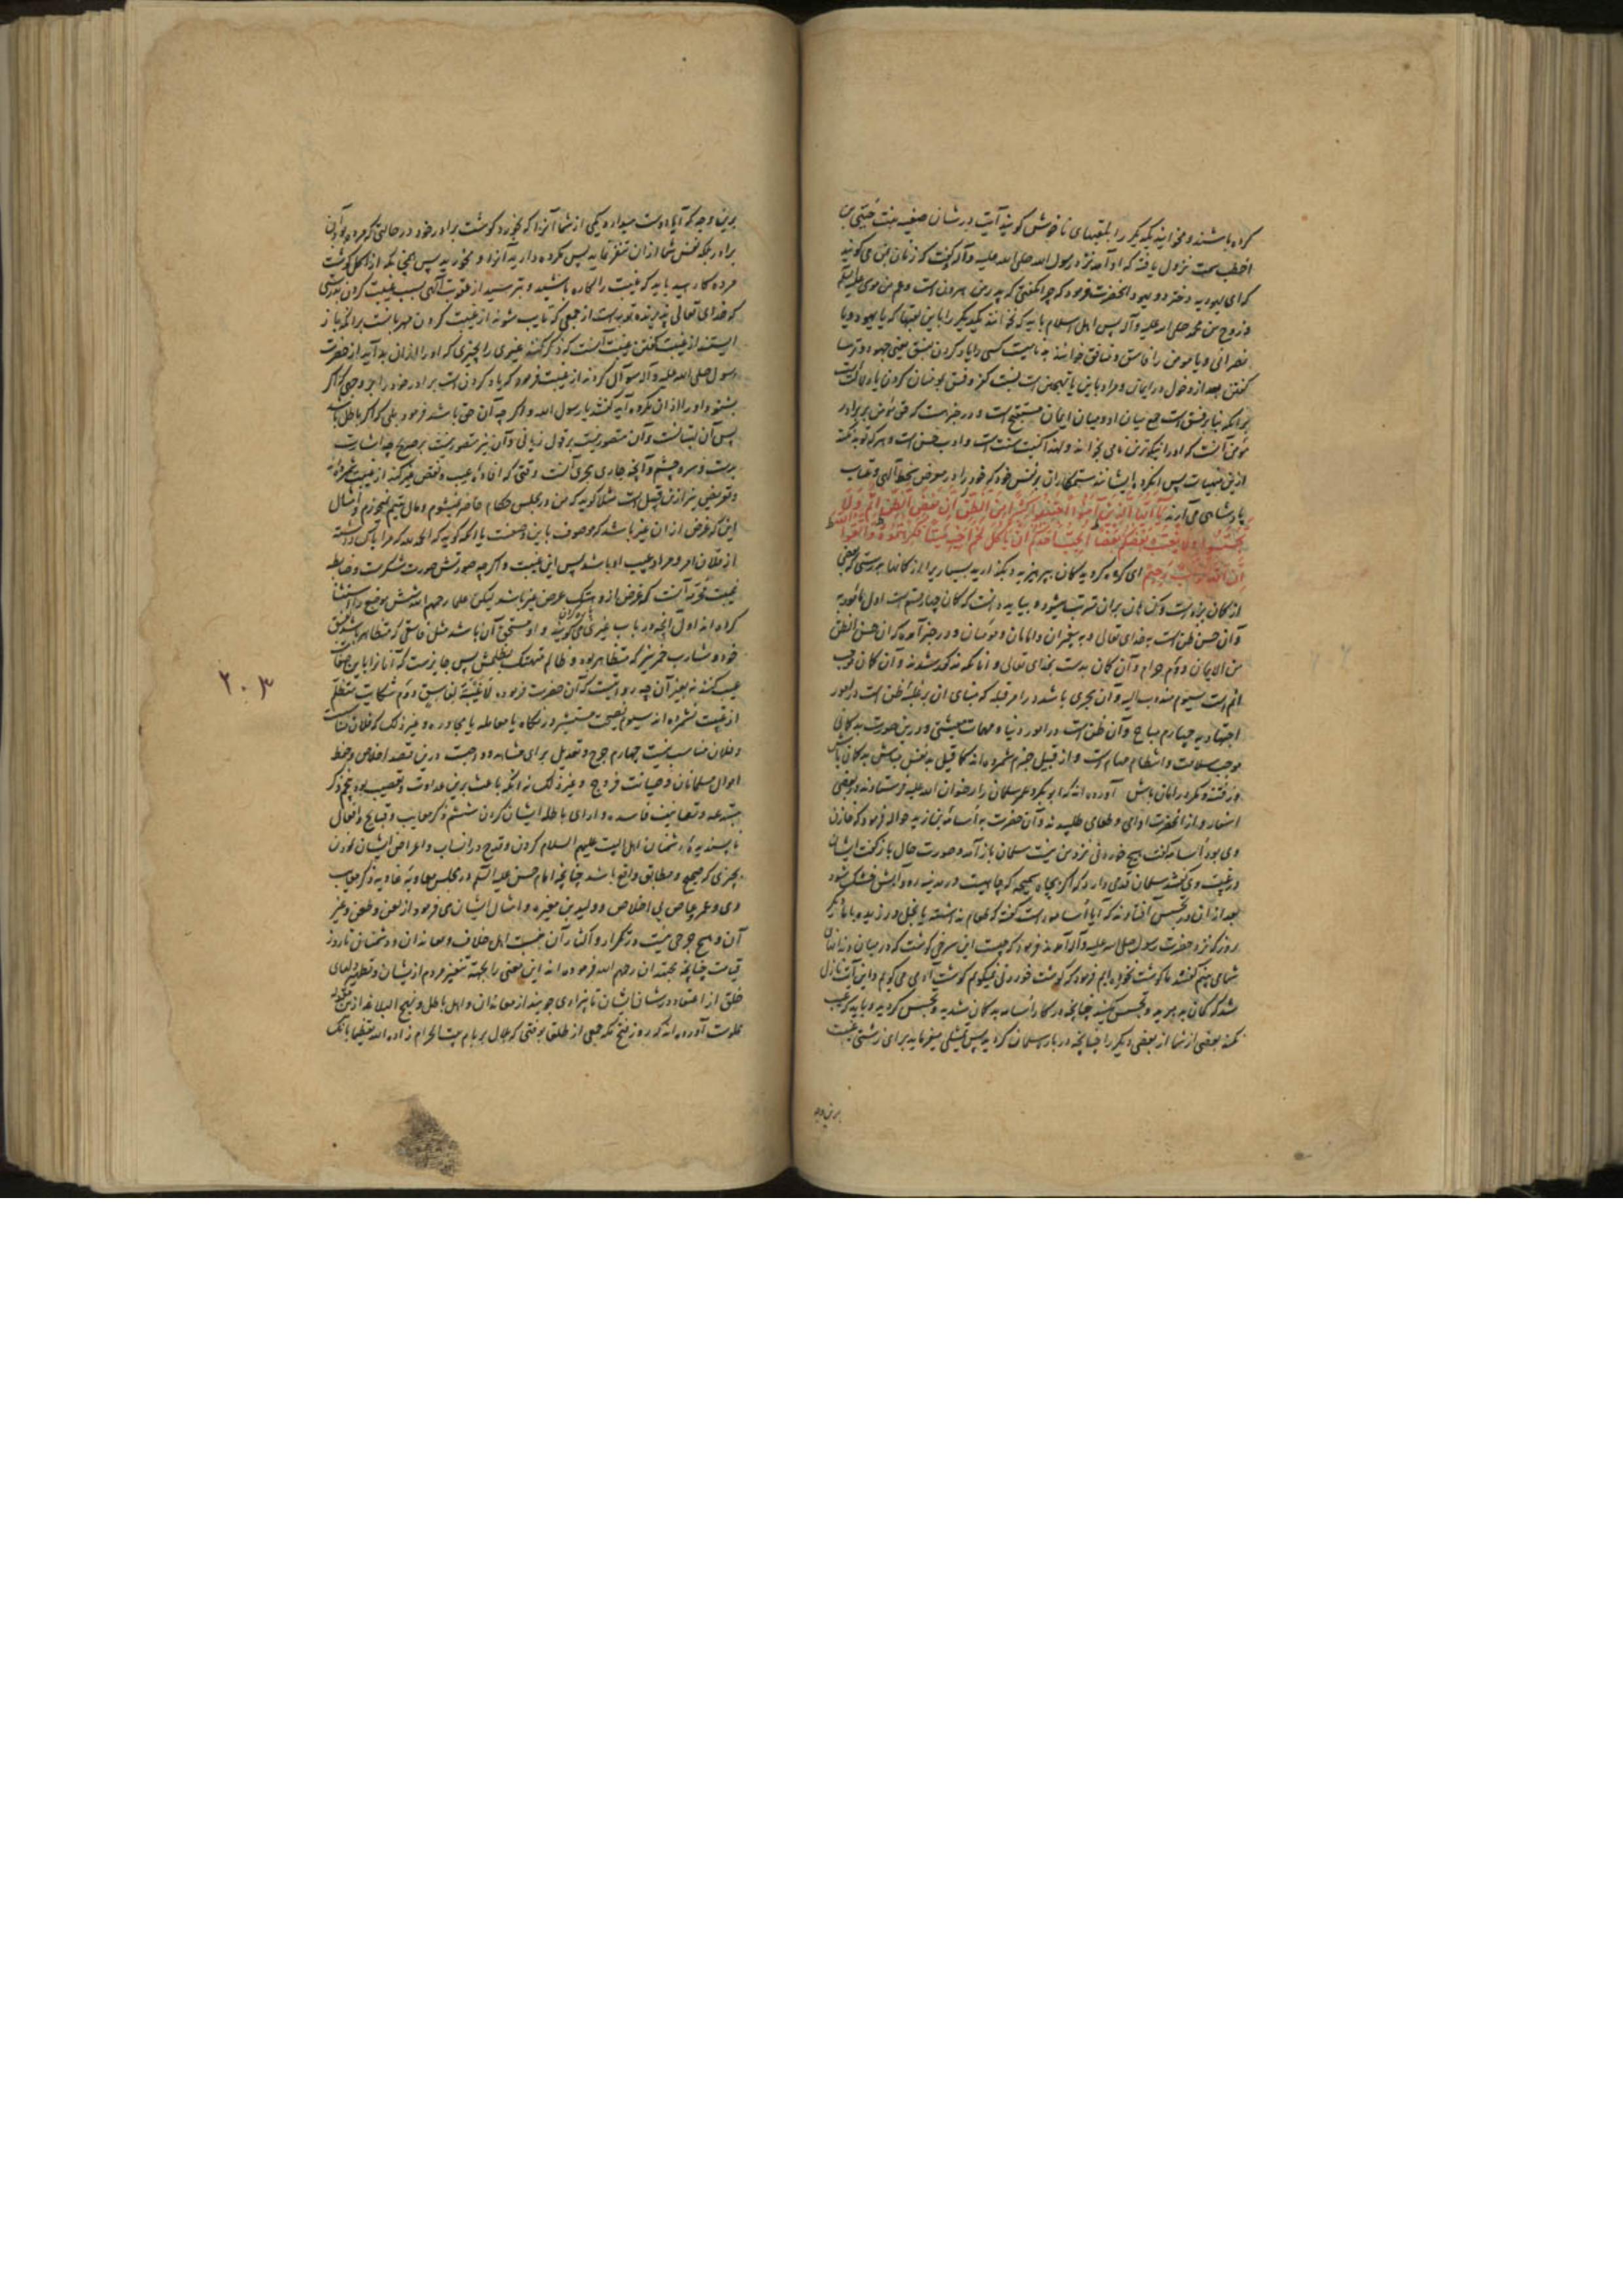 کرده باشند و مخوانید یکدیگر را بلقبهای ناخوش گویند آیت در شان صفیه بنت حیی بن
اخطب سمت نزول یافته که او آمد نزد رسول الله صلی الله علیه و آله گفت که زنان بمن می گویند
که ای یهودیه دختر دو یهود آنحضرت فرمود که چرا نگفتی که پدر من هرون است و عم من موسی علیه السلم
و زوج من محمد صلی الله علیه و آله پس اهل اسلام باید که نخوانند یکدیگر را باین لقبها که یا یهود و یا
نصرانی و یا مومن را فاسق و منافق خوانند
گفتن بعد از دخول در ایمان و مراد باین یا تهجین است نسبت کفر و فسق بمومنان کردن یا دلالت
مؤمن آنست که او را نیکوترین نامی بخوانند و لهذا کنیت سنت است و ادب حسن است و هر که توبه نکند
ازین منهیات پس آنگروه ایشانند ستمکاران بر نفس خود که خود را در معرض سخط الهی و عتاب
پادشاهی می آرند یَا أَیُّهَا الَّذِینَ آمَنُوا اجْتَنِبُوا کَثِیرًا مِنَ الظَّنِّ إِنَّ بَعْضَ الظَّنِّ إِثْمٌ وَلَا
تَجَسَّسُوا وَلَا یَغْتَبْ بَعْضُکُمْ بَعْضًا أَیُحِبُّ أَحَدُکُمْ أَنْ یَأْکُلَ لَحْمَ أَخِیهِ مَیْتًا فَکَرِهْتُمُوهُ وَاتَّقُوا اللَّهَ
إِنَّ اللَّهَ تَوَّابٌ رَحِیمٌ ای گروه گرویدگان بپرهیزید و بگذارید بسیار را از گمانها بدرستی که بعضی
از گمان بزه است و بباید دانست که گمان چهار قسم است اول مامور به
و آن حسن ظن است به خدای تعالی و به پیغمبران و امامان و مؤمنان و در خبر آمده که ان حسن الظن
من الایمان دوم حرام و آن گمان بد است بخدای تعالی و آنانکه مذکور شدند و آن گمان موجب
اثم است سیوم مندوب الیه و آن تحری باشد در امر قبله که بنای آن بر غلبه ظن است در امور
اجتهادیه چهارم مباح و آن ظن است در امور دنیا و مهمات معیشتی و درین صورت بدگمانی
موجب سلامت و انتظام مهام است و از قبیل حزم شمرده اند کما قیل بد نفس مباش بدگمان باش
وز فتنه و مکر در امان باش آورده اند که ابوبکر و عمر سلمان را رضوان الله علیه فرستادند در بعضی
اسفار و از آنحضرت ادامی و طعامی طلبیدند و آن حضرت به اسامه بن زید حواله فرمود که خازن
وی بود اسامه گفت هیچ خوردنی نزد من نیست سلمان باز آمد و صورت حال باز گفت ایشان
در غیبت وی گفتند سلمان قدمی دارد که اگر بچاه سمیحه که چاهیست در مدینه رود آبش خشک شود
بعد از آن در تجسس افتادند که آیا اسامه راست گفته که طعام نداشته یا بخل ورزیده
روز که نزد حضرت رسول صلی الله علیه و آله آمدند فرمود که چیست این سرخی گوشت که در میان دندانهای
شما می بینم گفتند ما گوشت نخورده ایم فرمود که گوشت خوردنی نمیگویم گوشت آدمی می گویم و این آیت نازل
شد که گمان بد مبرید و تجسس مکنید چنانچه در کار اسامه بدگمان شدید و تجسس کردید و باید که غیبت
نکند بعضی از شما از بعضی دیگر را چنانچه در باره سلمان کردید پس تمثیلی میفرماید برای زشتی غیبت
برین وجه
برین وجه که آیا دوست میدارد یکی از شما آنرا که بخورد گوشت برادر خود در حالتی که مرده بود آن
برادر بلکه نفس شما از آن تنفر نماید پس مکروه دارید آنرا و نخورید پس همچنانکه از اکل گوشت
مرده کارهید باید که غیبت را کاره باشید و بترسید از عقوبت الهی بسبب غیبت کردن بدرستی
که خدای تعالی پذیرنده توبه است از جمعی که تایب شوند از غیبت کردن مهربانست بر آنکه باز
ایستند از غیبت گفتن غیبت آنست که ذکر کنند غیری را بچیزی که او را از آن بد آید از حضرت
رسول صلی الله علیه و آله سوال کردند از غیبت فرمود که یاد کردن است برادر خود را بر وجهی که اگر
بشنود او را از آن مکروه آید گفتند یا رسول الله و اگر چه آن حق باشد فرمود بلی که اگر باطل باشد
پس آن بهتانست و آن مقصور نیست بر قول زبانی و آن نیز مقصور نیست بر صریح چه اشارت
بدست و سر و چشم و آنچه جاری مجری آنست وقتی که افاده عیب و نقص غیر کند از غیبت شمرده اند
و تعریض نیز ازین قبیل است مثلا گوید که من در مجلس حکام حاضر نمیشوم و مال یتیم نمیخورم و امثال
این که غرض از آن غیر باشد که موصوف باین صفت یا آنکه گوید که الحمد لله که مرا پاک داشته
از فلان امر و مراد عیب او باشد پس این غیبت و اگر چه صورتش صورت شکر است و ضابطه
غیبت محرمه آنست که غرض از و هتک عرض غیر باشد لیکن علما رحمهم الله شش موضع را استثنا
کرده اند اول آنچه در باب غیری می گویند و او مستحق آن باشد مثل فاسقی که متظاهر باشد بفسق
خود و شارب خمر نیز که متظاهر بود و ظالم متهتک بظلمش پس جایز است که آنانرا باین صفات
عیب کنند نه بغیر آن چه روایتست که آن حضرت فرموده لاغیبة لفاسق دوم شکایت متظلم
از غیبت نشمرده اند سیوم نصیحت مستشیر در نکاح یا معامله یا مجاوره و غیر ذلک که فلان مناسبست
و فلان مناسب نیست چهارم جرح و تعدیل برای مشاهد و درین قصد اخلاص و حفظ
اموال مسلمانان و صیانت فروج و غیر ذلک نه آنکه باعث برین عداوت و تعصب بود پنجم ذکر
مبتدعه و تصانیف فاسده و ارای باطله ایشان کردن ششم ذکر معایب و قبایح و افعال
ناپسندیده دشمنان اهل البیت علیهم السلام کردن و قدح در انساب و اعراض ایشان نمودن
بچیزی که صحیح و مطابق واقع باشد چنانچه امام حسن علیه السلم در مجلس معاویه غاویه ذکر معایب
وی و عمرو عاص بی اخلاص و ولید بن مغیره و امثال ایشان می فرمود از لعن و طعن و غیر
آن و هیچ حرجی نیست در تکرار و اکثار آن نسبت اهل خلاف و معاندان و دشمنان تا روز
قیامت چنانچه مجتهدان رحمهم الله فرموده اند این معنی را بجهته تنفیر مردم از ایشان و تطهیر دلهای
خلق از اعتقاد در شان ایشان تا بیزاری جویند از معاندان و اهل باطل
آورده اند که روز فتح مکه جمعی از طلقا بوقتی که بلال بر بام بیت الحرام زاده الله تعظیما بانگ
۲۰۳